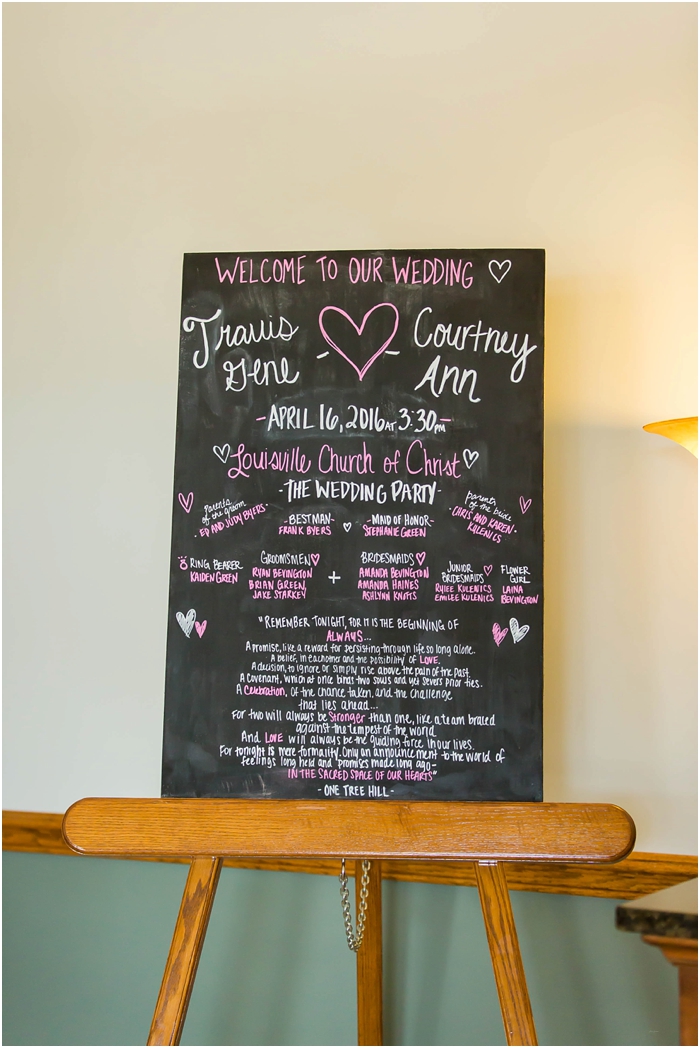 WELCOME TO OUR WEDDING
Travis Gene
Courtney Ann
-APRIL 16, 2016 AT 3:30PM-
Louisville Church of Christ
-THE WEDDING PARTY-
Parents of the groom
- ED AND JUDY BYERS
-BEST MAN-
FRANK BYERS
-MAID OF HONOR-
STEPHANIE GREEN
parents of the bride
- CHRIS AND KAREN KULENICS -
RING BEARER
KAIDEN GREEN
GROOMSMEN
RYAN BEVINGTON
BRIAN GREEN,
JAKE STARKEY
+
BRIDESMAIDS
AMANDA BEVINGTON
AMANDA HAINES
ASHLYNN KNOTTS
JUNIOR BRIDESMAIDS
RYLEE KULENICS
EMILEE KULENICS
FLOWER GIRL
LAINA BEVINGTON
"REMEMBER TONIGHT, FOR IT IS THE BEGINNING OF
ALWAYS...
A promise, like a reward for persisting through life so long alone.
A belief, in eachother and the possibility of LOVE.
A decision, to ignore or simply rise above the pain of the past.
A covenant, which at once binds two souls and yet severs prior ties.
A Celebration, of the chance taken, and the challenge
that lies ahead...
For two will always be Stronger than one, like a team braled
against the tempest of the world.
And LOVE will always be the guiding force in our lives.
For tonight is mere formality. Only an announcement to the world of
feelings long held and promises made long ago-
IN THE SACRED SPACE OF OUR HEARTS"
- ONE TREE HILL -